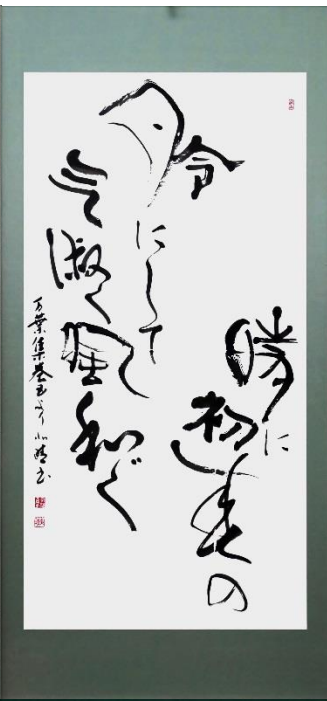 時に初春の
令月にして
気淑く風和ぐ
万葉集巻五より